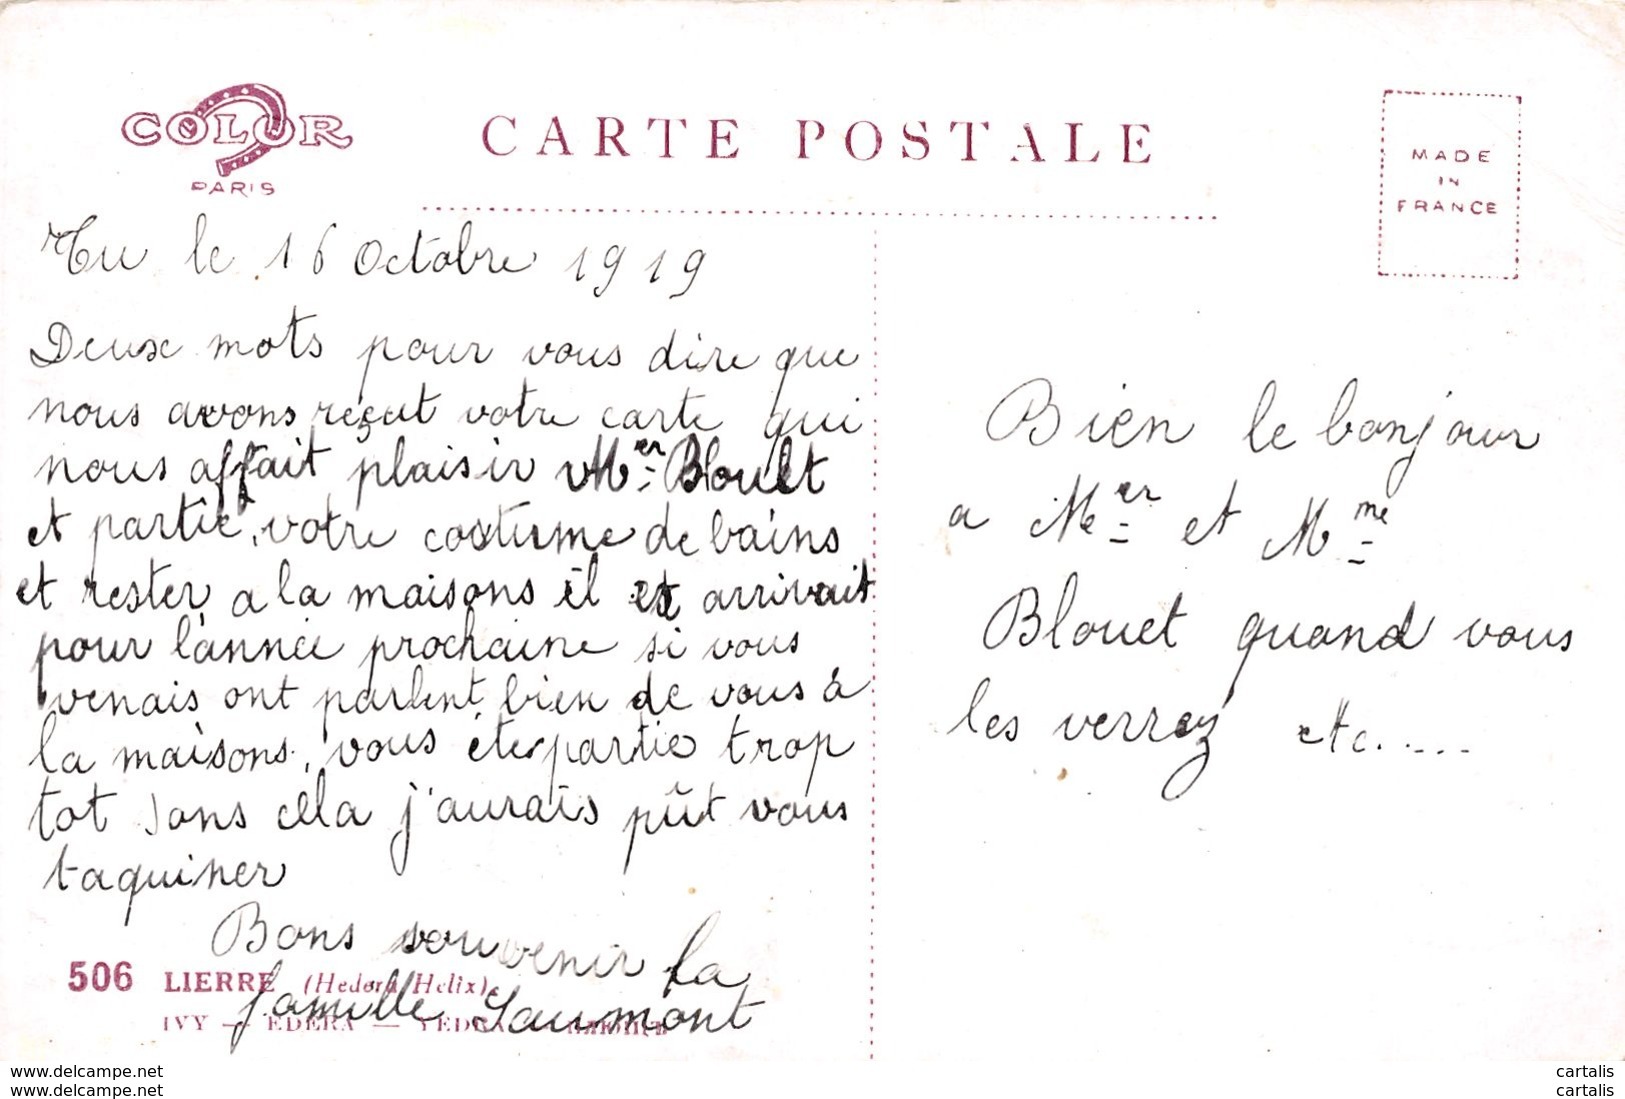 COLOR
PARIS
CARTE POSTALE
MADE
IN
FRANCE
le 16 Octobre 1919
Deux mots pour vous dire que
nous avons reçut votre carte qui
nous affait plaisir Mer Blouet
et partie, votre costume de bains
et rester a la maisons il et arrivait
pour l'année prochaine si vous
venais ont parlent bien de vous à
la maisons, vous éte partie trop
tot sans cela j'aurais pût vous
taquiner
Bons souvenir la
famille Saumont
Bien le bonjour
a Mer et Mme
Blouet quand vous
les verrez etc.....
506 LIERRE (Hedera Helix).
IVY — EDERA —
www.delcampe.net
www.delcampe.net
cartalis
cartalis